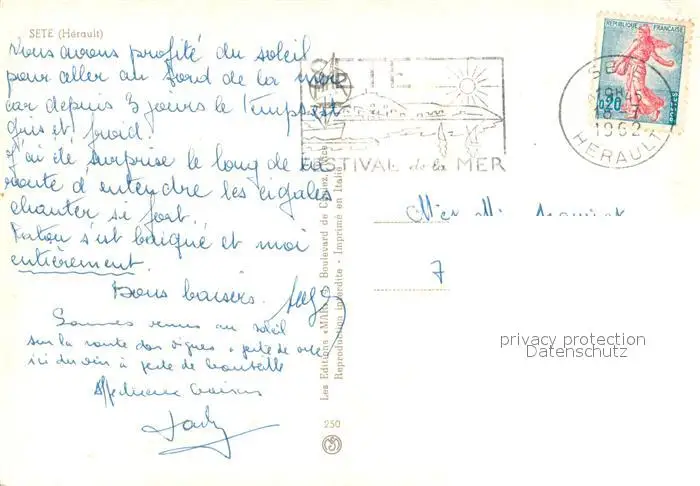 SETE (Hérault)
Nous avons profité du soleil
pour aller au bord de la mer
car depuis 3 jours le temps est
gris et froid.
J'ai été surprise le long de la
route d'entendre les cigales
chanter si fort.
s'est baigné et moi
entièrement.
Bons baisers.
Sommes venus au soleil
sur la route des vignes
ici du vin à perte de
Affectueux baisers
250
Les Editions «MAR» Boulevard de
Reproduction interdite - Imprimé en Italie
SETE
FESTIVAL de la MER
REPUBLIQUE FRANÇAISE
0,20
POSTES
SETE
19H45
16-7
1962
HERAULT
7
privacy protection
Datenschutz